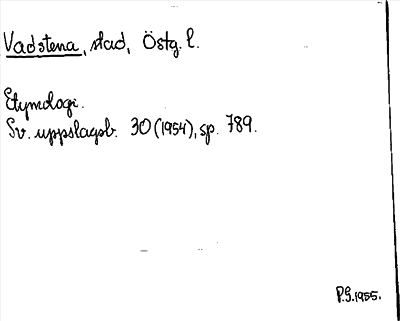 Vadstena, stad, Östg. l.
Etymologi.
Sv. uppslagsb. 30 (1954), sp. 789.
P.G. 1955.